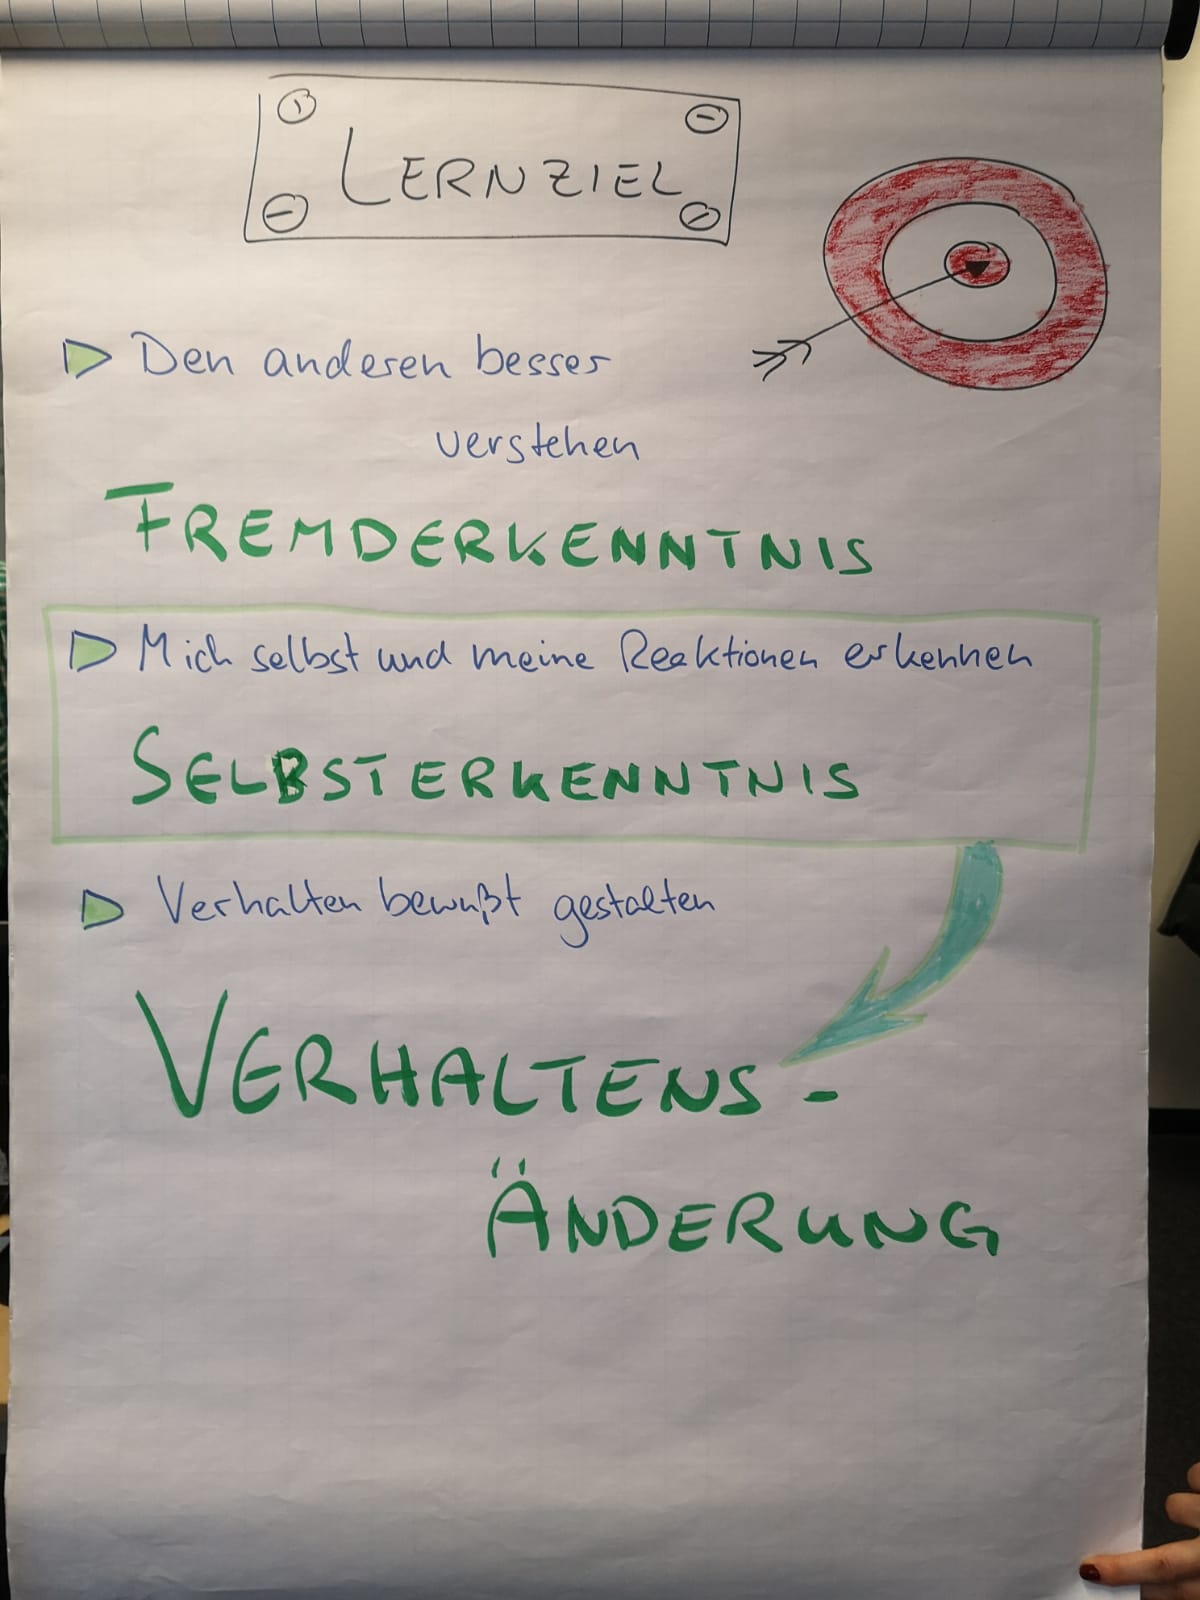 LERNZIEL
Den anderen besser
verstehen
FREMDERKENNTNIS
Mich selbst und meine Reaktionen erkennen
SELBSTERKENNTNIS
Verhalten bewußt gestalten
VERHALTENS-
ÄNDERUNG